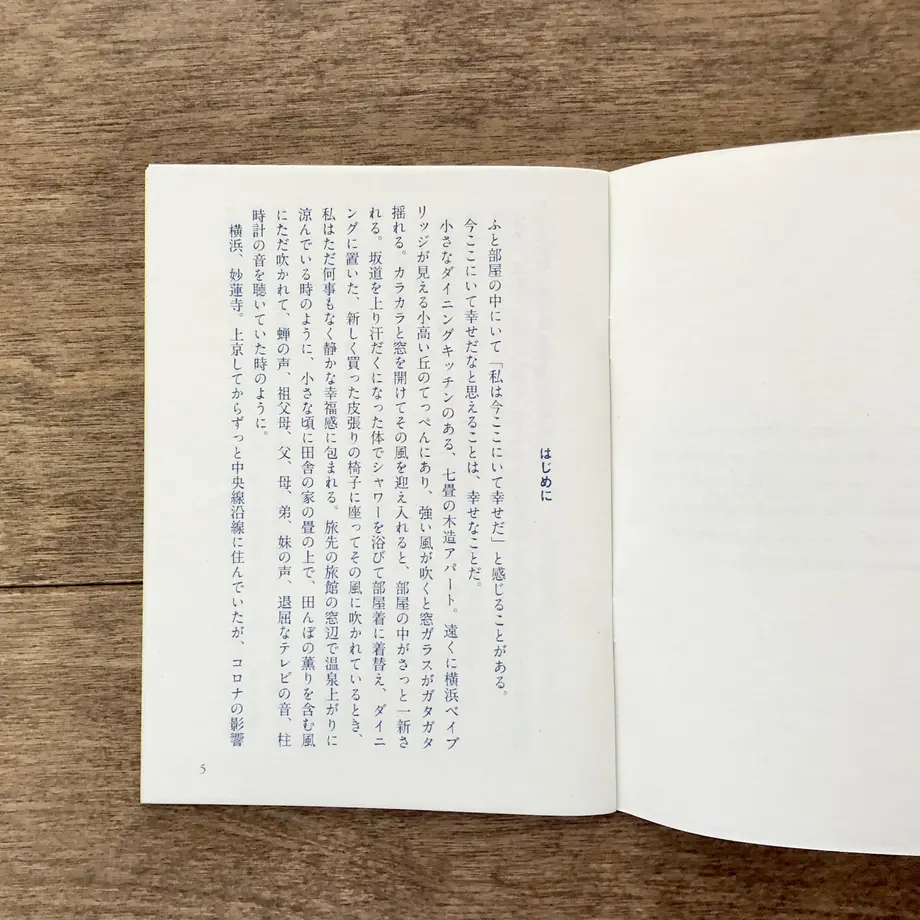 はじめに
ふと部屋の中にいて「私は今ここにいて幸せだ」と感じることがある。
今ここにいて幸せだなと思えることは、幸せなことだ。
小さなダイニングキッチンのある、七畳の木造アパート。遠くに横浜ベイブ
リッジが見える小高い丘のてっぺんにあり、強い風が吹くと窓ガラスがガタガタ
揺れる。カラカラと窓を開けてその風を迎え入れると、部屋の中がさっと一新さ
れる。坂道を上り汗だくになった体でシャワーを浴びて部屋着に着替え、ダイニ
ングに置いた、新しく買った皮張りの椅子に座ってその風に吹かれているとき、
私はただ何事もなく静かな幸福感に包まれる。旅先の旅館の窓辺で温泉上がりに
涼んでいる時のように、小さな頃に田舎の家の畳の上で、田んぼの薫りを含む風
にただ吹かれて、蝉の声、祖父母、父、母、弟、妹の声、退屈なテレビの音、柱
時計の音を聴いていた時のように。
横浜、妙蓮寺。上京してからずっと中央線沿線に住んでいたが、コロナの影響
5